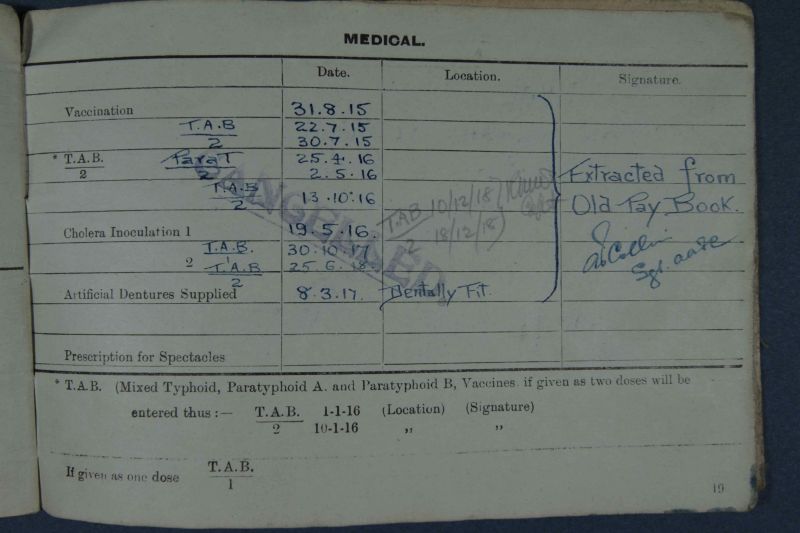 MEDICAL.
Date. Location. Signature.
Vaccination 31.8.15
T.A.B 22.7.15
2 30.7.15
* T.A.B. Para T 25.4.16
2 2 2.5.16
T.A.B 13.10.16
2
CANCELLED
T.A.B 10/12/18
2 18/12/18
Extracted from
Old Pay Book.
Sgt. aamc
Cholera Inoculation 1 19.5.16.
T.A.B. 30.10.17
1
2 T.A.B 25.6.18
2
Artificial Dentures Supplied 8.3.17. Dentally Fit.
Prescription for Spectacles
* T.A.B. (Mixed Typhoid, Paratyphoid A. and Paratyphoid B, Vaccines if given as two doses will be
entered thus :— T.A.B. 1-1-16 (Location) (Signature)
2 10-1-16 ,, ,,
If given as one dose T.A.B.
1
19